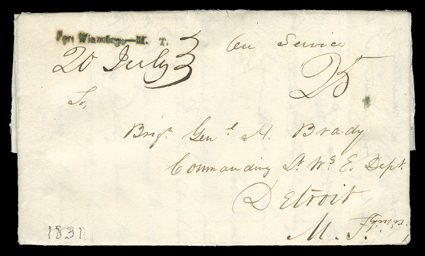 Fort Winnebago—M. T.
20 July
On Service
25
To,
Brigr. Genl. H. Brady
Commanding
Dept.
Detroit
M. T.
1831